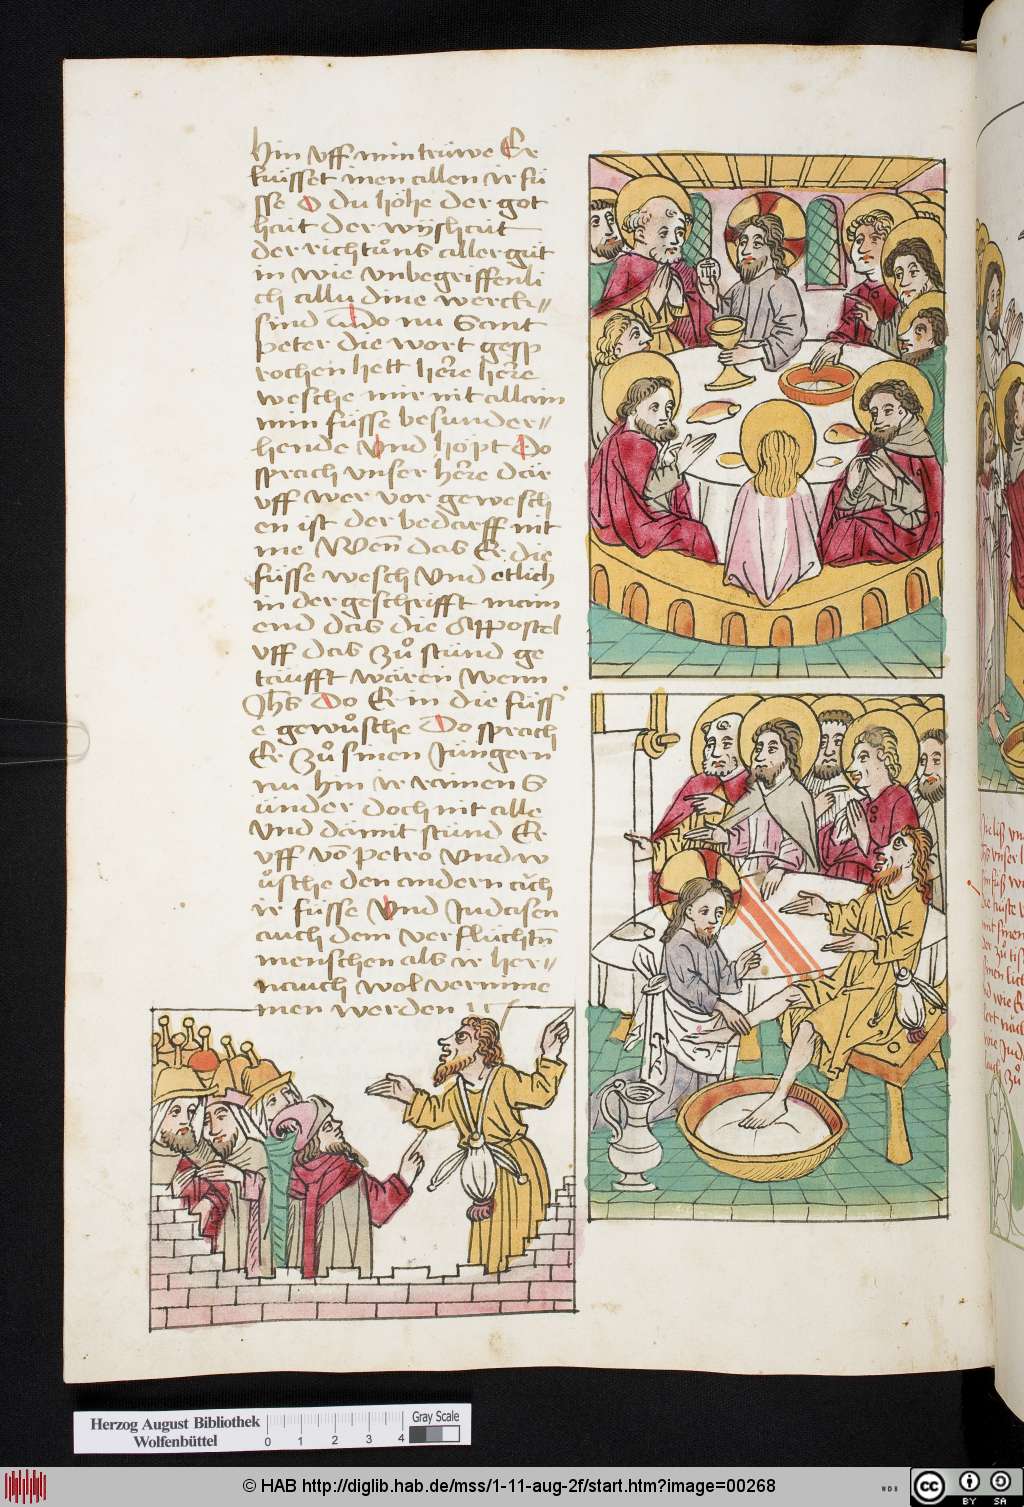 hin vff min trüwe Er
kusset inen allen ir fü
sse O du höhe der got
hait der wyshait
der richtůng aller gůt
in wie vnbegriffenli
ch allu dine werck
sind Do nu Sant
peter die wort gesp
rochen hett here here
wesche mir nit allain
min füsse besunder
hende Vnd hopt Do
sprach vnser here där
vff wer vor gewesch
en ist der bedarff nit
me Wen das Er die
füsse wesch Vnd etlich
in der geschrifft main
end das die Appostel
vff das zů stünd ge
taufft wären wenn
Jhs Do Er in die füss
e gewůsche Do sprach
Er zů sinen Jüngern
nu hin ir rainen s
under doch nit alle
Vnd dämit stünd Er
vff vo petro Vnd w
ůsche den andern ůch
ir füsse Vnd Judasen
auch dem verflüchtn
menschen als ir her
nauch wol vernime
men werden
Herzog August Bibliothek
Wolfenbüttel
0 1 2 3 4
Gray Scale
© HAB http://diglib.hab.de/mss/1-11-aug-2f/start.htm?image=00268
WDB
cc
BY SA